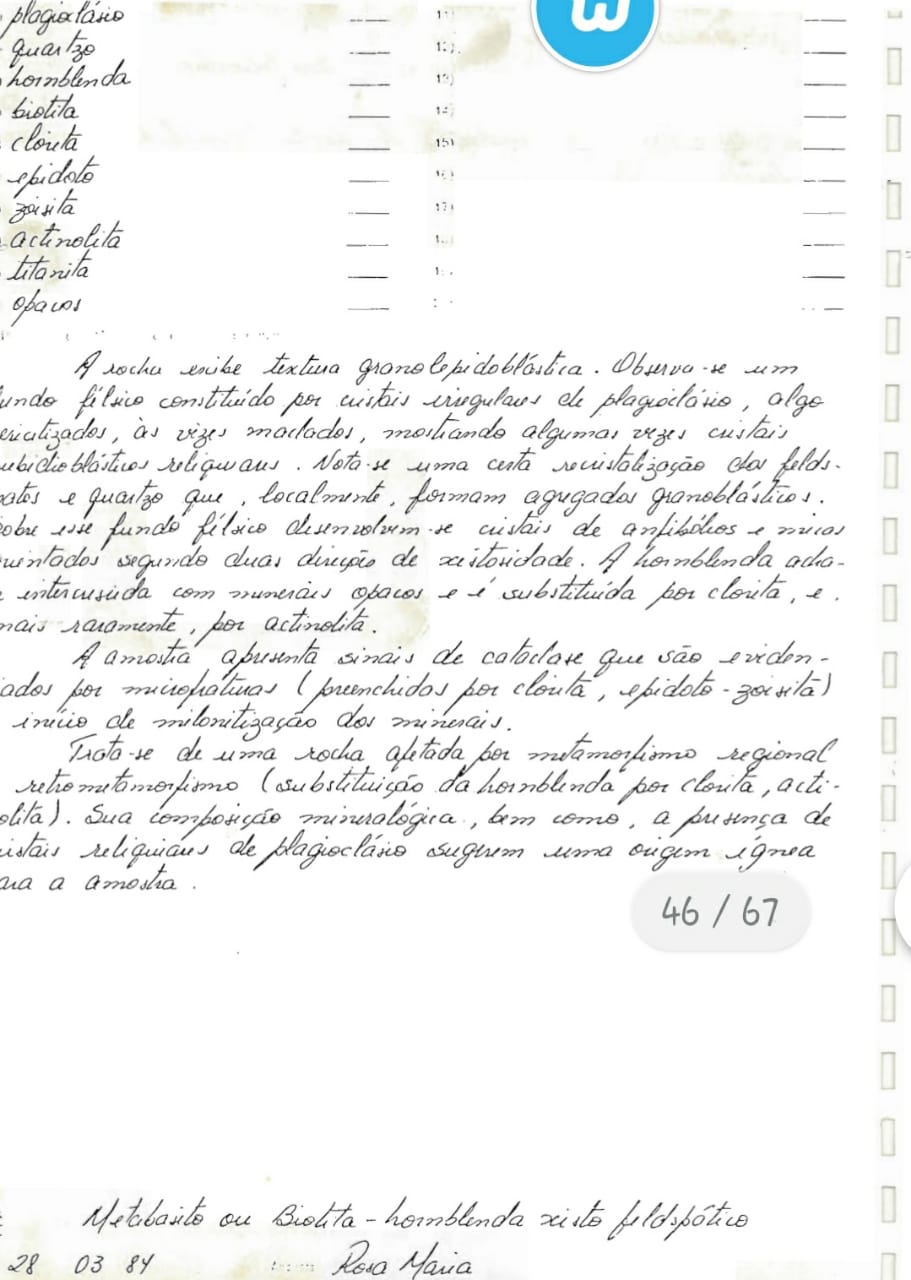 plagioclásio 11)
quartzo 12)
hornblenda 13)
biotita 14)
clorita 15)
epidoto 16)
zoisita 17)
actinolita
titanita
opacos
A rocha exibe textura granolepidoblástica. Observa-se um
undo félsico constituído por cristais irregulares de plagioclásio, algo
ericitizados, às vezes maclados, mostrando algumas vezes cristais
ubidioblásticos reliquiares. Nota-se uma certa recristalização dos felds-
patos e quartzo que, localmente, formam agregados granoblásticos.
obre esse fundo félsico desenvolvem-se cristais de anfibólios e micas
rientados segundo duas direção de xistosidade. A hornblenda acha-
e intercrescida com minerais opacos e é substituída por clorita, e,
mais raramente, por actinolita.
A amostra apresenta sinais de cataclase que são eviden-
iados por microfraturas (preenchidas por clorita, epidoto-zoisita)
início de milonitização dos minerais.
Trata-se de uma rocha afetada por metamorfismo regional
retrometamorfismo (substituição da hornblenda por clorita, acti-
olita). Sua composição mineralógica, bem como, a presença de
ristais reliquiares de plagioclásio sugerem uma origem ígnea
ara a amostra.
46 / 67
Metabasito ou Biotita-hornblenda xisto feldspático
28 03 84 Rosa Maria